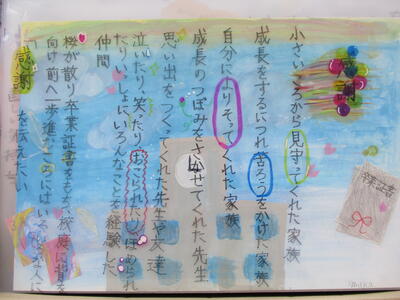 感謝
小さいころから見守ってくれた家族
成長をするにつれ苦ろうをかけた家族
自分によりそってくれた家族
成長のつぼみをさかせてくれた先生
思い出をつくってくれた先生や友達
泣いたり、笑ったり、おこられたり、ほめられ
たり、いっしょにいろんなことを経験した
仲間
桜が散り卒業証書をもち校庭に背を
向け前へ一歩進む
感謝
を伝えたい
卒業証書